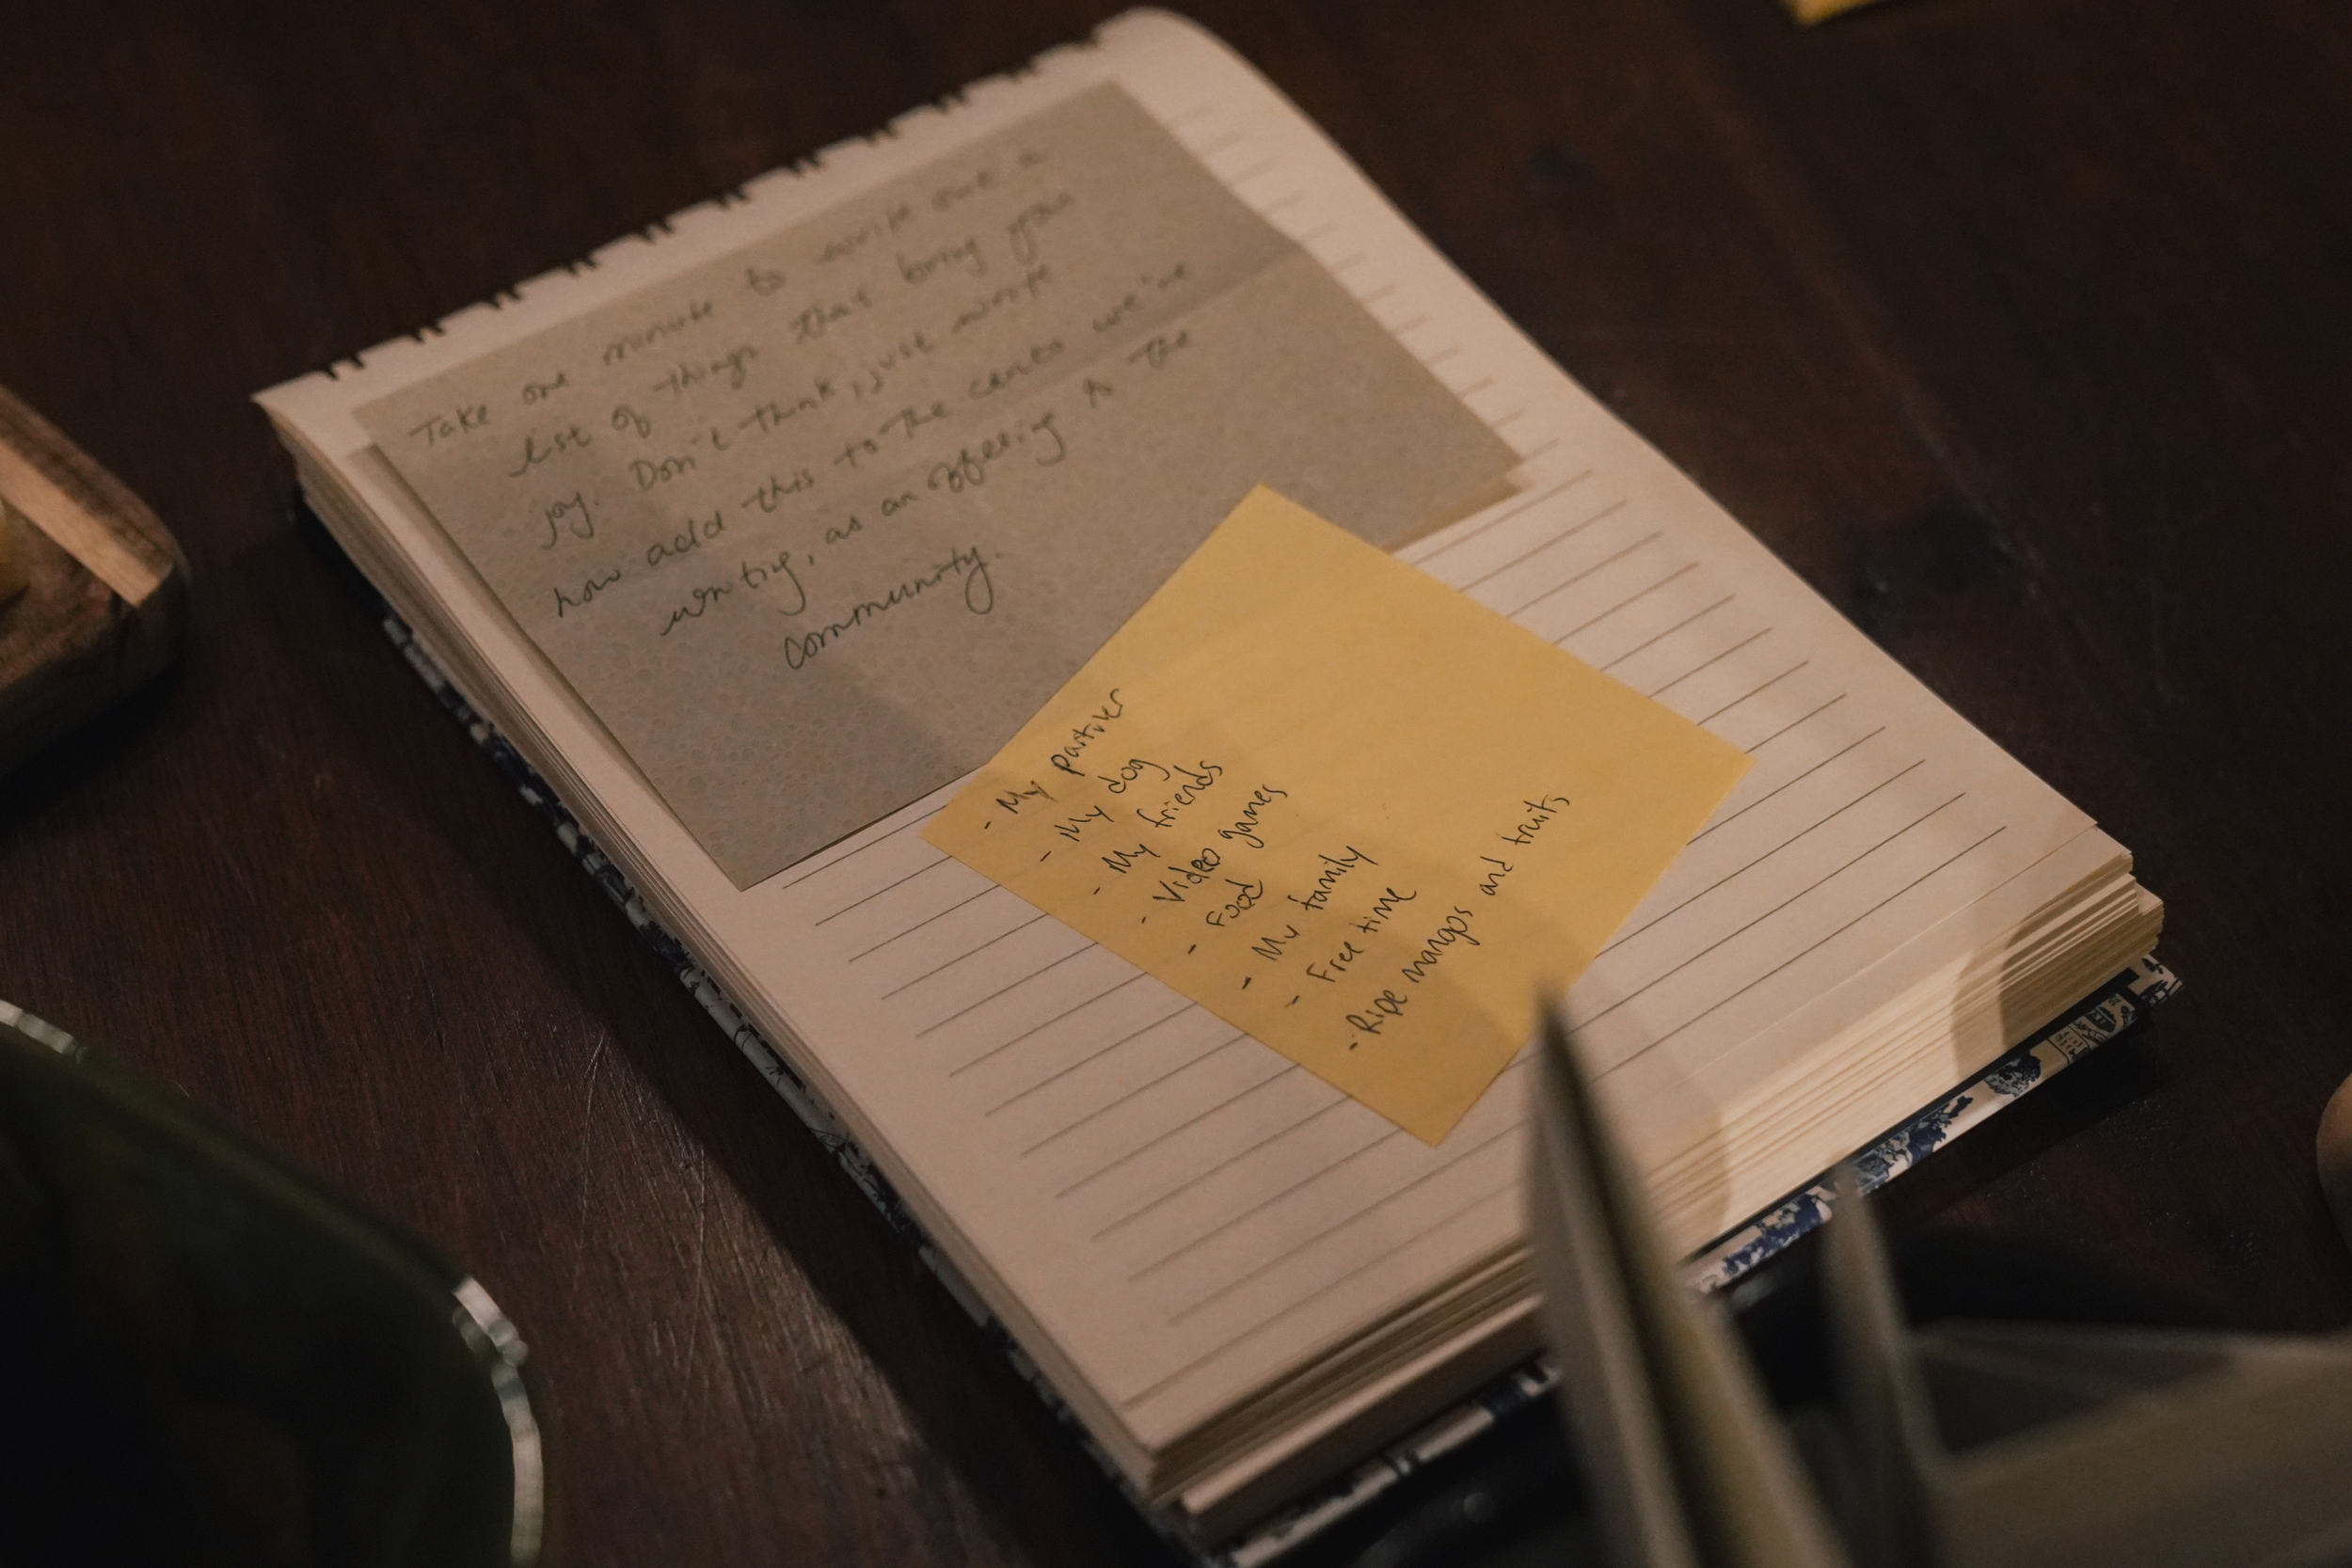 Take one minute to write out a
list of things that bring you
joy. Don't think, just write.
now add this to the cento we're
writing, as an offering to the
community.
- My partner
- My dog
- My friends
- Video games
- Food
- My family
- Free time
- Ripe mangos and fruits